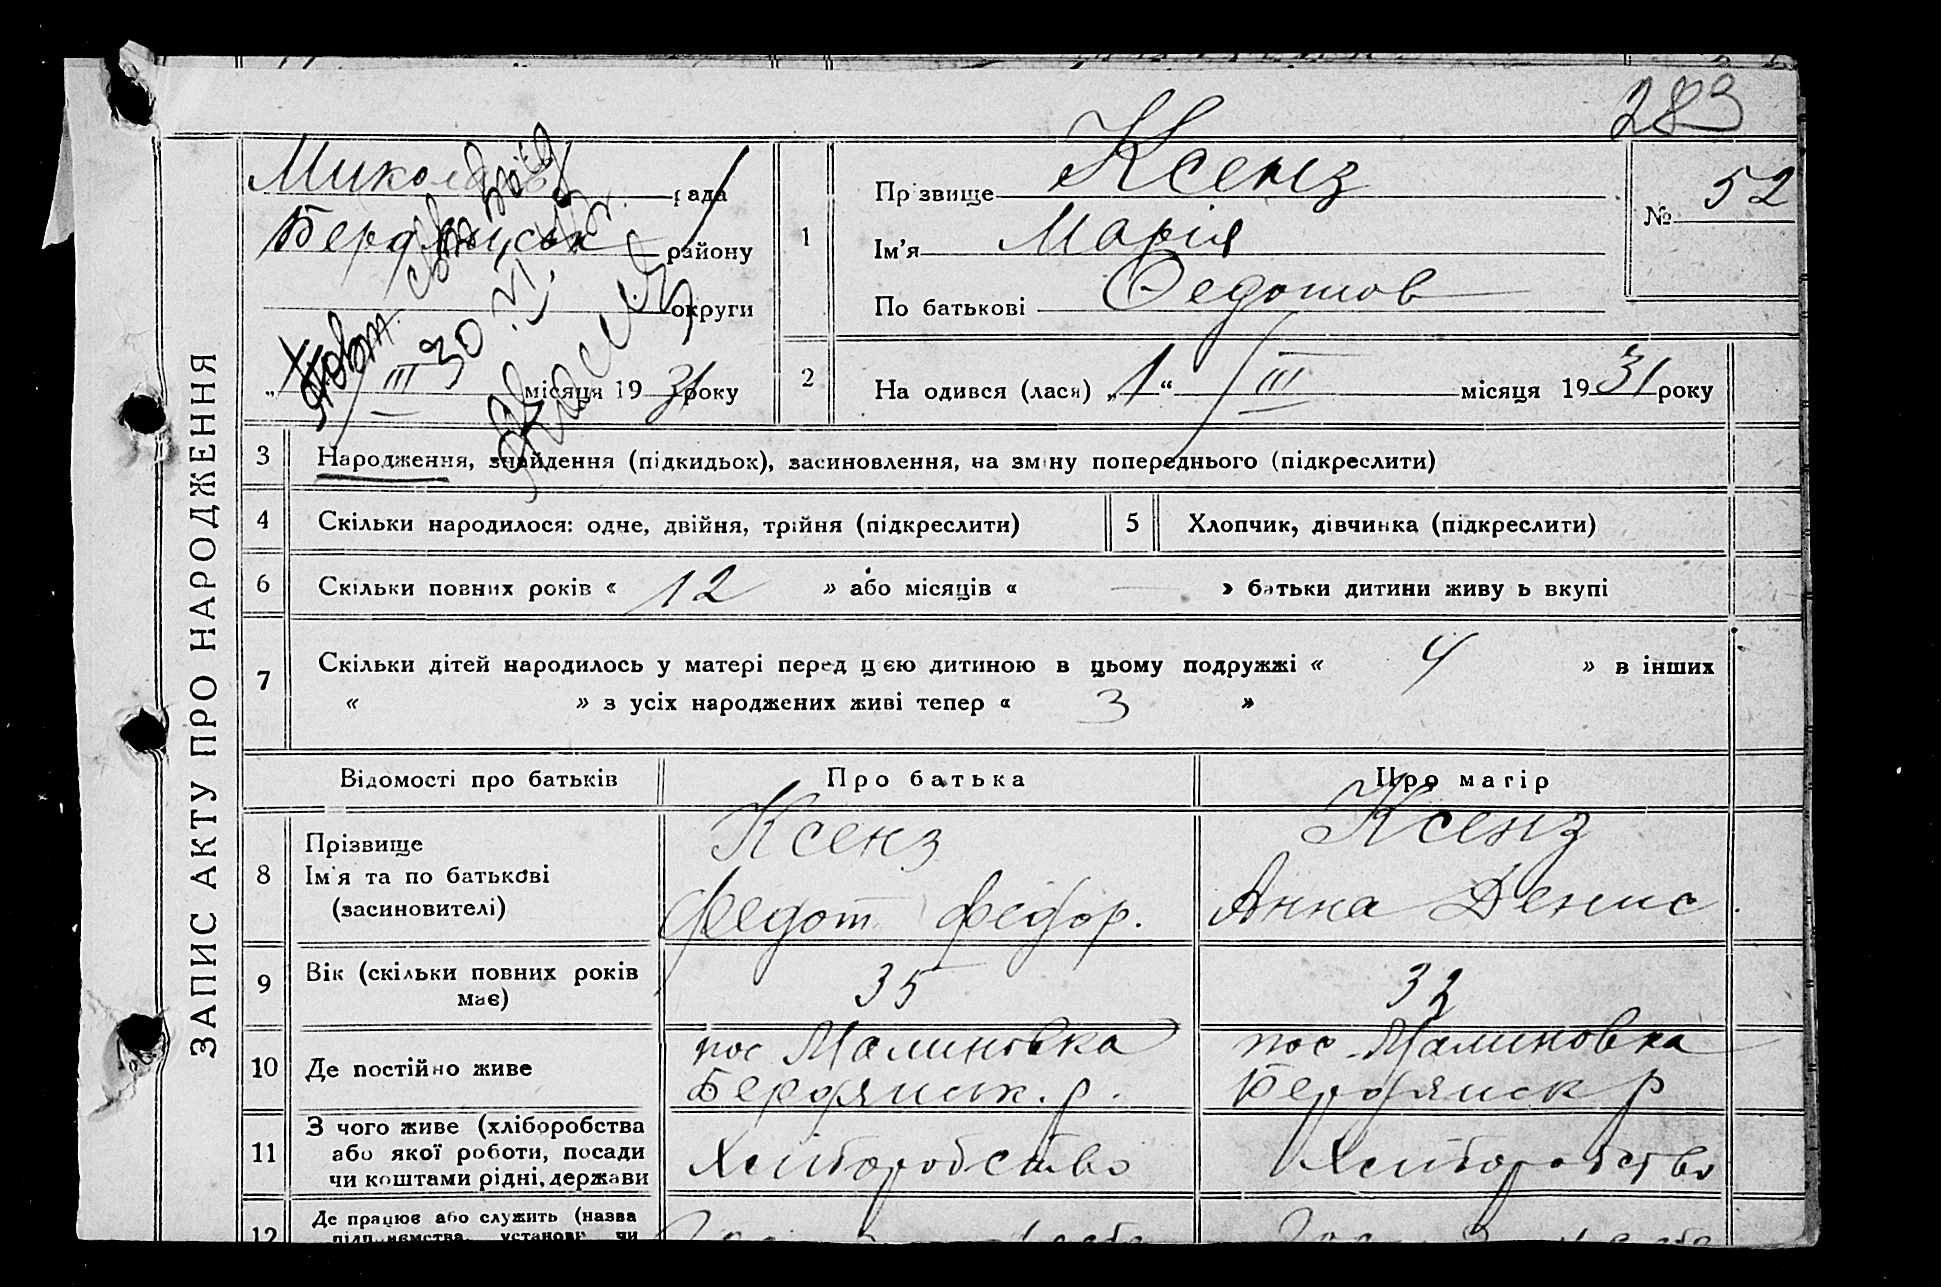 283
ЗАПИС АКТУ ПРО НАРОДЖЕННЯ
рада
Бердянськ району
округи
III місяця 1931 року
Повт. свідоцтво
30 VI
1
Прізвище Ксенз
Ім'я Марія
По батькові Федотов
№ 52
2 На одився (лася) „1“ III місяця 1931 року
3 Народження, знайдення (підкидьок), засиновлення, на зміну попереднього (підкреслити)
4 Скільки народилося: одне, двійня, трійня (підкреслити) 5 Хлопчик, дівчинка (підкреслити)
6 Скільки повних років « 12 » або місяців « — » батьки дитини живу ь вкупі
7 Скільки дітей народилось у матері перед цією дитиною в цьому подружжі « 4 » в інших
« » з усіх народжених живі тепер « 3 »
Відомості про батьків Про батька Про матір
8 Прізвище Ксенз Ксенз
Ім'я та по батькові Федот Федор. Анна Денис.
(засиновителі)
9 Вік (скільки повних років має) 35 32
10 Де постійно живе пос Малиновка пос Малиновка
Бердянськ. р. Бердянск р
11 З чого живе (хліборобства
або якої роботи, посади Хліборобство Хліборобство
чи коштами рідні, держави
12 Де працює або служить (назва
підприємства, установи чи